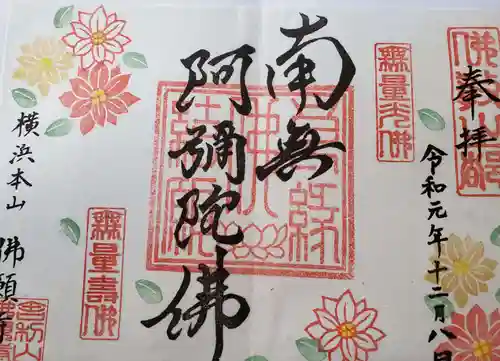 奉拝
令和元年十二月八日
無量光佛
南無
阿彌陀佛
無量壽佛
横浜本山
佛願寺